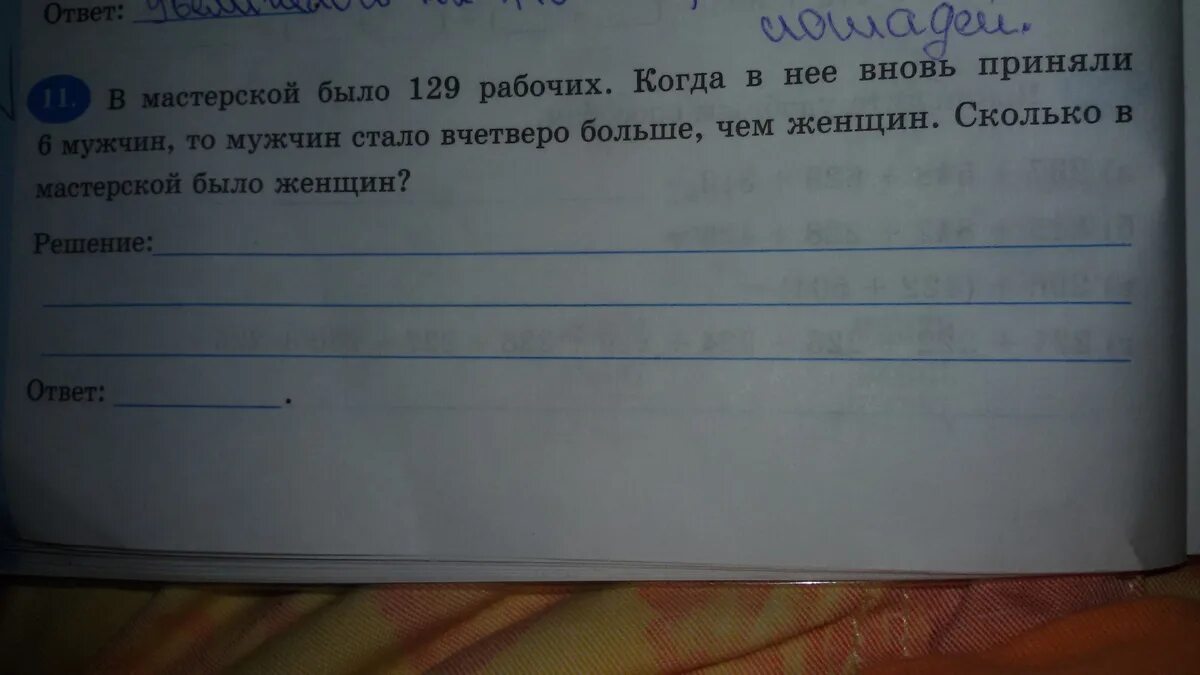 Ответ:
лошадей.
11. В мастерской было 129 рабочих. Когда в нее вновь приняли
6 мужчин, то мужчин стало вчетверо больше, чем женщин. Сколько в
мастерской было женщин?
Решение:
Ответ: .